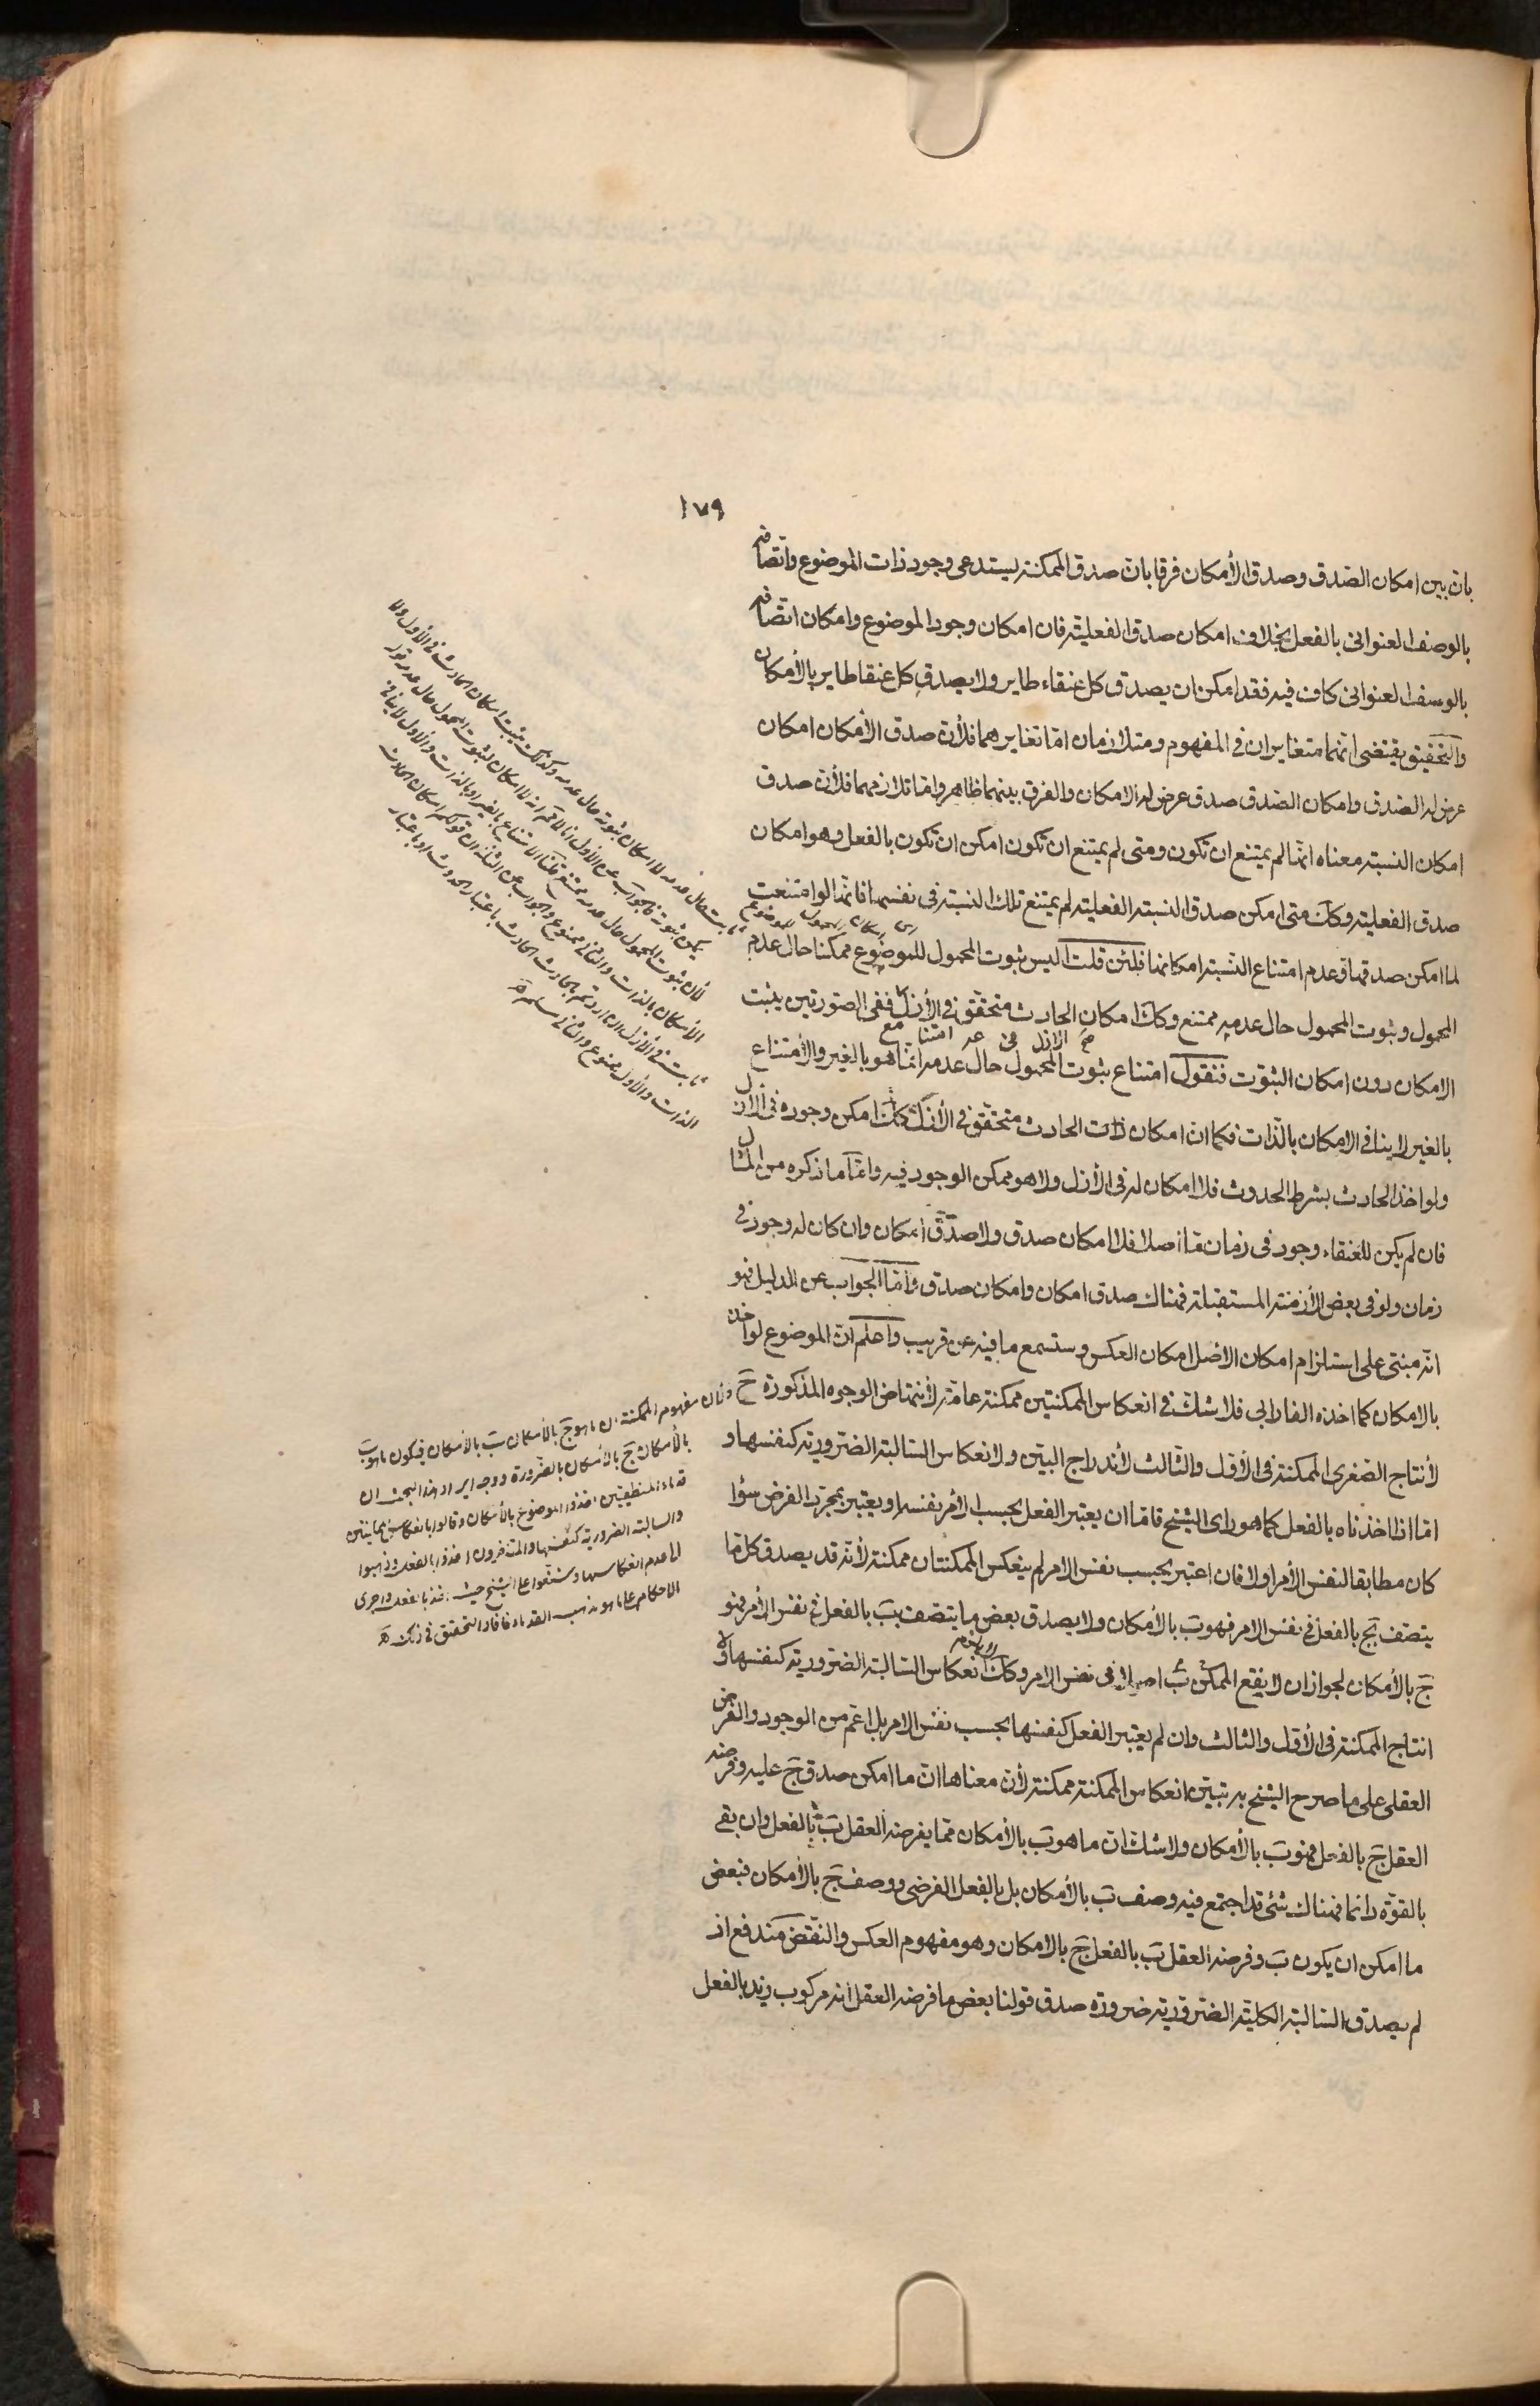 ١٧٩
بان بين امكان الصدق وصدق الأمكان فرقا بان صدق الممكنة يستدعى وجود ذات الموضوع واتصافه
بالوصف العنوانى بالفعل بخلاف امكان صدق الفعلية فان امكان وجود الموضوع وامكان اتصافه
بالوصف العنوانى كاف فيه فقد امكن ان يصدق كل عنقاء طاير ولا يصدق كل عنقا طاير بالأمكان
والتحقيق يقتضى انهما متغايران فى المفهوم ومتلازمان امّا تغايرهما فلأن صدق الأمكان امكان
عرض له الصدق وامكان الصدق صدق عرض له الامكان والفرق بينهما ظاهر وامّا تلازمهما فلأن صدق
امكان النسبة معناه انّها لم يمتنع ان تكون ومتى لم يمتنع ان تكون امكن ان تكون بالفعل وهو امكان
صدق الفعلية وكك متى امكن صدق النسبة الفعلية لم يمتنع تلك النسبة فى نفسها فانّها لو امتنعت
لما امكن صدقها وعدم امتناع النسبة امكانها فلئن قلت اليس ثبوت المحمول للموضوع ممكنا حال عدم
المحمول وثبوت المحمول حال عدمه ممتنع وكك امكان الحادث متحقق فى الأزل ففى الصورتين يثبت
الامكان دون امكان الثبوت فنقول امتناع ثبوت المحمول حال عدمه انّما هو بالغير والأمتناع
بالغير لا ينافى الامكان بالذات فكما ان امكان ذات الحادث متحقق فى الأزل كك امكن وجوده فى الأزل
ولو اخذ الحادث بشرط الحدوث فلا امكان له فى الأزل ولا هو ممكن الوجود فيه وامّا ما ذكره من المثال
فان لم يكن للعنقاء وجود فى زمان ما اصلا فلا امكان صدق ولا صدق امكان وان كان له وجود فى
زمان ولو فى بعض الأزمنة المستقبلة فهناك صدق امكان وامكان صدق وأمّا الجواب عن الدليل فهو
انّه مبنى على استلزام امكان الاصل امكان العكس وستسمع ما فيه عن قريب واعلم ان الموضوع لو اخذ
بالامكان كما اخذه الفارابى فلا شك فى انعكاس الممكنتين ممكنة عامّة لأنتهاض الوجوه المذكورة ح
لأنتاج الصغرى الممكنة فى الأوّل والثالث لأندراج البيّن ولانعكاس السالبة الضرورية كنفسها و
امّا اذا اخذناه بالفعل كما هو راى الشيخ فامّا ان يعتبر الفعل بحسب الأمر نفسه او يعتبر بمجرّد الفرض سؤا
كان مطابقا لنفس الأمر اولا فان اعتبر بحسب نفس الامر لم ينعكس الممكنتان ممكنة لأنّه قد يصدق كل ما
يتصف بج بالفعل فى نفس الامر فهو ب بالأمكان ولا يصدق بعض ما يتصف بب بالفعل فى نفس الأمر فهو
ج بالأمكان لجواز ان لا يقع الممكن ب اصلا فى نفس الامر وكك انعكاس السالبة الضرورية كنفسها ولا
انتاج الممكنة فى الأوّل والثالث وان لم يعتبر الفعل كنفسها بحسب نفس الامر بل اعم من الوجود والفرض
العقلى على ما صرح الشيخ به تبيّن انعكاس الممكنة ممكنة لأن معناها ان ما امكن صدق ج عليه وفرضه
العقل ج بالفعل فهو ب بالأمكان ولا شك ان ما هو ب بالأمكان ممّا يفرضه العقل ب بالفعل وان بقى
بالقوّة دائما فهناك شئ قد اجتمع فيه وصف ب بالأمكان بل بالفعل الفرضى ووصف ج بالأمكان فبعض
ما امكن ان يكون ب وفرضه العقل ب بالفعل ج بالامكان وهو مفهوم العكس والنقض مندفع اذ
لم يصدق السالبة الكلية الضرورية ضرورة صدق قولنا بعض ما فرضه العقل انه مركوب زيد بالفعل
ولأن مفهوم الممكنة ان ما هو ج بالأمكان ب بالأمكان فيكون ما هو ب
بالأمكان ج بالأمكان بالضرورة ووجه ايراد هذا البحث ان
قدماء المنطقيين اخذوا الموضوع بالأمكان وقالوا بانعكاس
والسالبة الضرورية كنفسها والمتاخرون اخذوا بالفعل وذهبوا
الى عدم انعكاسها وشنعوا على الشيخ حيث اخذ بالفعل واجرى
الاحكام على ما هو مذهب القدماء فافاد التحقيق فى ذلك